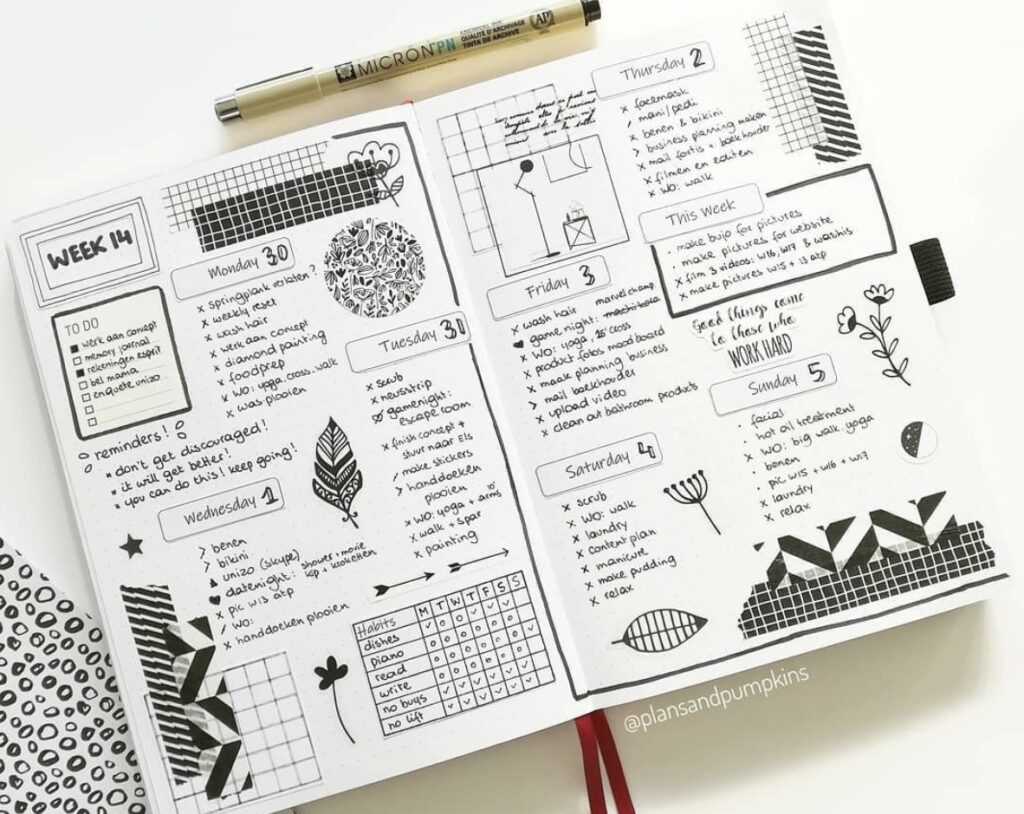 ARCHIVAL INK
QUALITÉ D'ARCHIVAGE
TINTA DE ARCHIVE
AP
MICRON PN
WEEK 14
TO DO
werk aan concept
memory journal
rekeningen esprit
bel mama
enquete unizo
reminders!
* don't get discouraged!
* it will get better!
* you can do this! keep going!
Monday 30
x springplank verlaten?
x weekly reset
x wash hair
x werk aan concept
x diamond painting
x foodprep
x WO: yoga, cross, walk
x was plooien
Tuesday
x scrub
x neusstrip
gamenight:
escape room
x finish concept +
stuur naar Els
/ make stickers
> handdoeken
plooien
x WO: yoga + arms
x walk + spar
x painting
Wednesday 1
> benen
> bikini
unizo (skype)
♥ datenight: shower + movie
kip + kroketten
x pic W13 atp
/ WO:
x handdoeken plooien
Habits M T W T F S S
dishes
piano
read
write
no buys
no lift
Thursday 2
x facemask
/ mani/pedi
x benen & bikini
> business planning maken
x mail fortis + boekhouder
x filmen en editen
x WO: walk
This Week
· make bujo for pictures
· make pictures for webstite
x film 3 videos: W16, W17 & washis
x make pictures W15 + 13 atp
Friday 3
x wash hair
♥ game night: machikoro marvel champ.
x WO: yoga, 15' cross
x product fotos moodboard
x maak planning business
x mail boekhouder
> upload video
x clean out bathroom products
Good things come
to those who
WORK HARD
Saturday 4
x scrub
x WO: walk
x laundry
x content plan
x manicure
x make pudding
x relax
Sunday 5
· facial
· hot oil treatment
x WO: big walk, yoga
· benen
· pic W15 + W16 + W17
x laundry
x relax
@plansandpumpkins